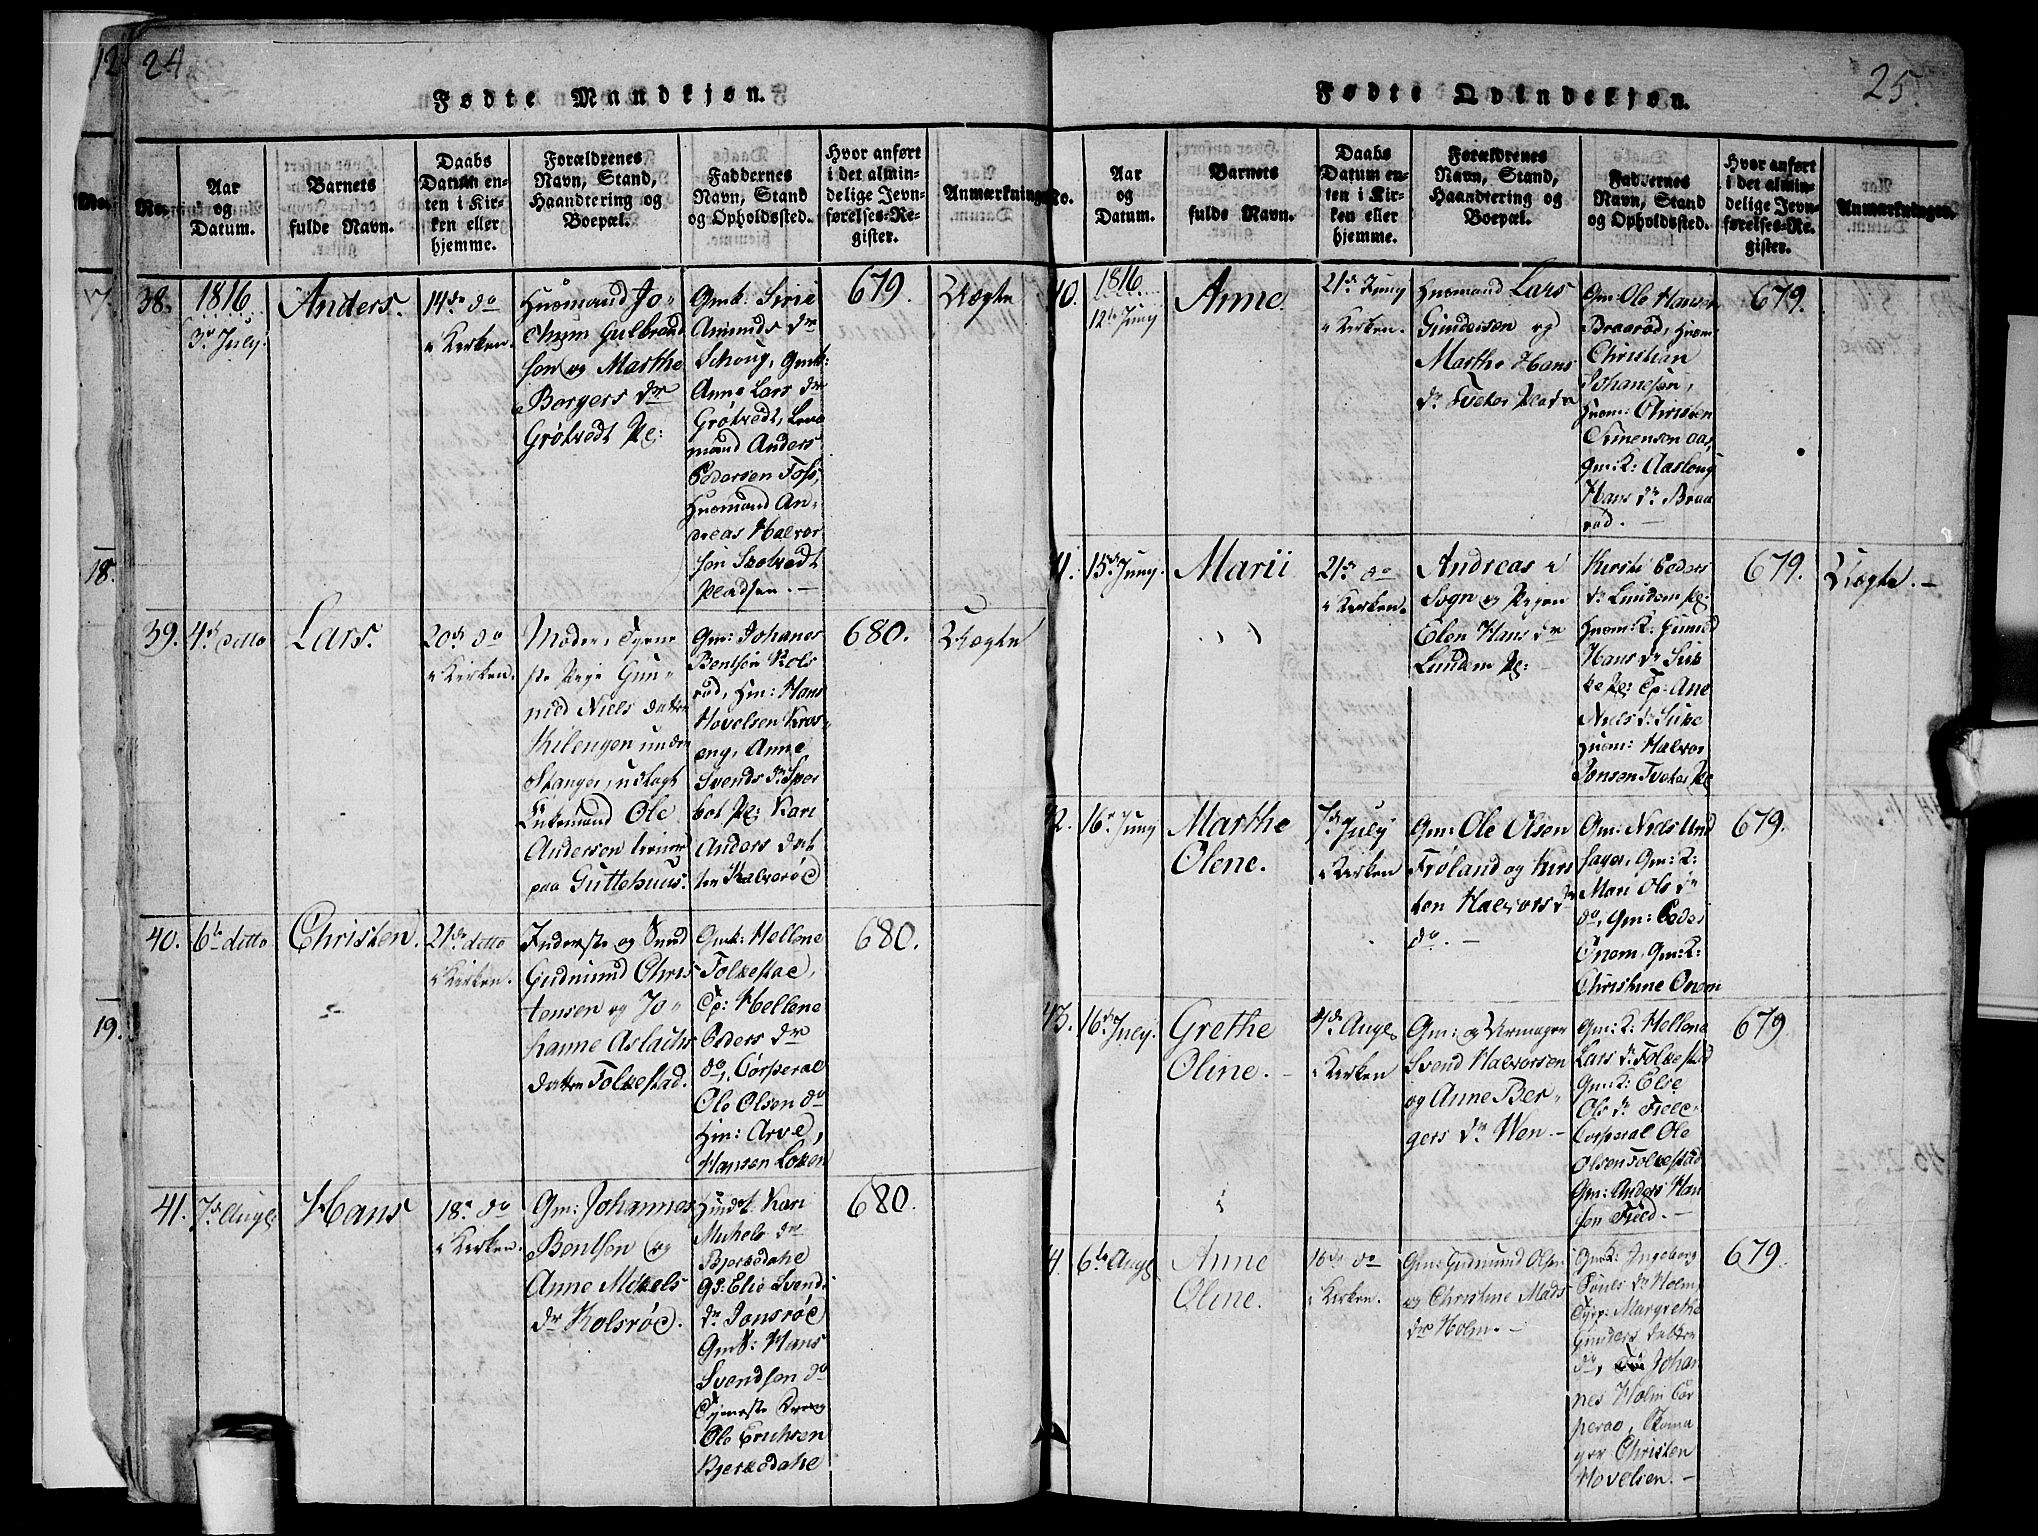 24.
Fødte Mandkjøn.
No.
Aar
og
Datum.
Barnets
fulde Navn.
Daabs
Datum en-
ten i Kir-
ken eller
hjemme.
Forældrenes
Navn, Stand,
Haandtering og
Boepæl.
Faddernes
Navn, Stand
og Opholdssted.
Hvor anført
i det almin-
delige Jevn-
førelses-Re-
gister.
Anmærkninger.
38.
1816
3de July.
Anders.
14de do
i Kirken.
Huusmand Jo-
chum Gulbrand
sen og Marthe
Borgers dr
Grøtvedt Pl:
Gmk: Sirie
Amunds dr
Schoug, Gmk:
Anne Lars dr
Grøtvedt,
mand Anders
Pedersen Foss,
Huusmand An-
dreas Halvor
sen
Pladsen. —
679.
Uægte
39.
4de ditto
Lars.
20de do
i Kirken.
Moder, Tiene
ste Pige Gun-
nild Niels datter
under
Stanger, udlagt
Ole
Andersen
paa Guttehuus.
Gm: Johanes
Bentsen Kols
rød, Hm: Hans
Hovelsen Kros-
eng, Anne
Svends dr
Pl: Kari
Anders dat
ter Kalverød
680.
Uægte
40.
6te ditto
Christen.
21de ditto
i Kirken.
Inderste og Smed
Gudmund Chris
tensen og Jo-
hanne Aslachs
datter Folkestad.
Gmk: Hellene
Folkestad,
Tp: Hellene
Peders dr
do, Corperal
Ole Olsen do
Hm: Arve
Hansen Løken
680.
41.
7de Augs
Hans
18de do
i Kirken.
Gm: Johannes
Bentsen og
Anne Mikels
dr Kolsrød.
Kari
Michels dr
Bjerkedahl
Gd: Elie Svends
dr Jonsrød
Gmk: Hans
Svendsen do
Tjeneste Dreng
Ole Erichsen
Bjerkedahl
680.
25.
Fødte Qvindekjøn.
No.
Aar
og
Datum.
Barnets
fulde Navn.
Daabs
Datum en-
ten i Kir-
ken eller
hjemme.
Forældrenes
Navn, Stand,
Haandtering og
Boepæl.
Faddernes
Navn, Stand
og Opholdssted.
Hvor anført
i det almin-
delige Jevn-
førelses-Re-
gister.
Anmærkninger.
40.
1816
12te Juny
Anne
21de Juny
i Kirken.
Huusmand Lars
Gundersen og
Marthe Hans
dr Tveter Pladn
Gm: Ole Hansen
Braarød, Huusm:
Christian
Johansen,
Huusm: Christen
Simensen Aas,
Gm:K: Aasloug
Hans dr Braa
rød. —
679.
41.
15de Juny.
Marii
21de do
i Kirken.
Andreas i
Sogn og Pigen
Elen Hans dr
Lundem Pl:
Kirsti Peders
dr Lundem Pl:
Huusm:K: Gunild
Hans dr
Pl: Tp: Ane
Niels dr
Huusm: Halvor
Jonsen Tveter Pl
679.
Uægte. —
42.
16de Juny
Marthe
Olene.
7de July
i Kirken
Gm: Ole Olsen
Frøland og Kirs
ten Halvors dr
do. —
Gm: Niels Und
Gm:K:
Mari Ols dr
do, Gm: Peder
Onem, Gm:K:
Christine Onem
679.
43.
16de July.
Grethe
Oline. —
4de Augs
i Kirken
Gm: og
Svend Halvorsen
og Anne Ber-
gers dr Wen —
Gm:K: Hellene
Lars dr Folkestad
Gm:K: Else
Ols dr Field
Corperal Ole
Olsen Folkestad
Gm: Anders Han
sen Field. —
679
44.
6te Augs
Anne
Oline.
18de do
i Kirken.
Gm: Gudmund Olsen
og Christine Mads
dr Holm. —
Gm:K: Ingeborg
Pouls dr Holm,
Tjp: Margrethe
Gunders datter
do, Johan
nes Holm Cor
peral, Skoma
ger Christen
Hovelsen. —
679.
12
17
18.
19.